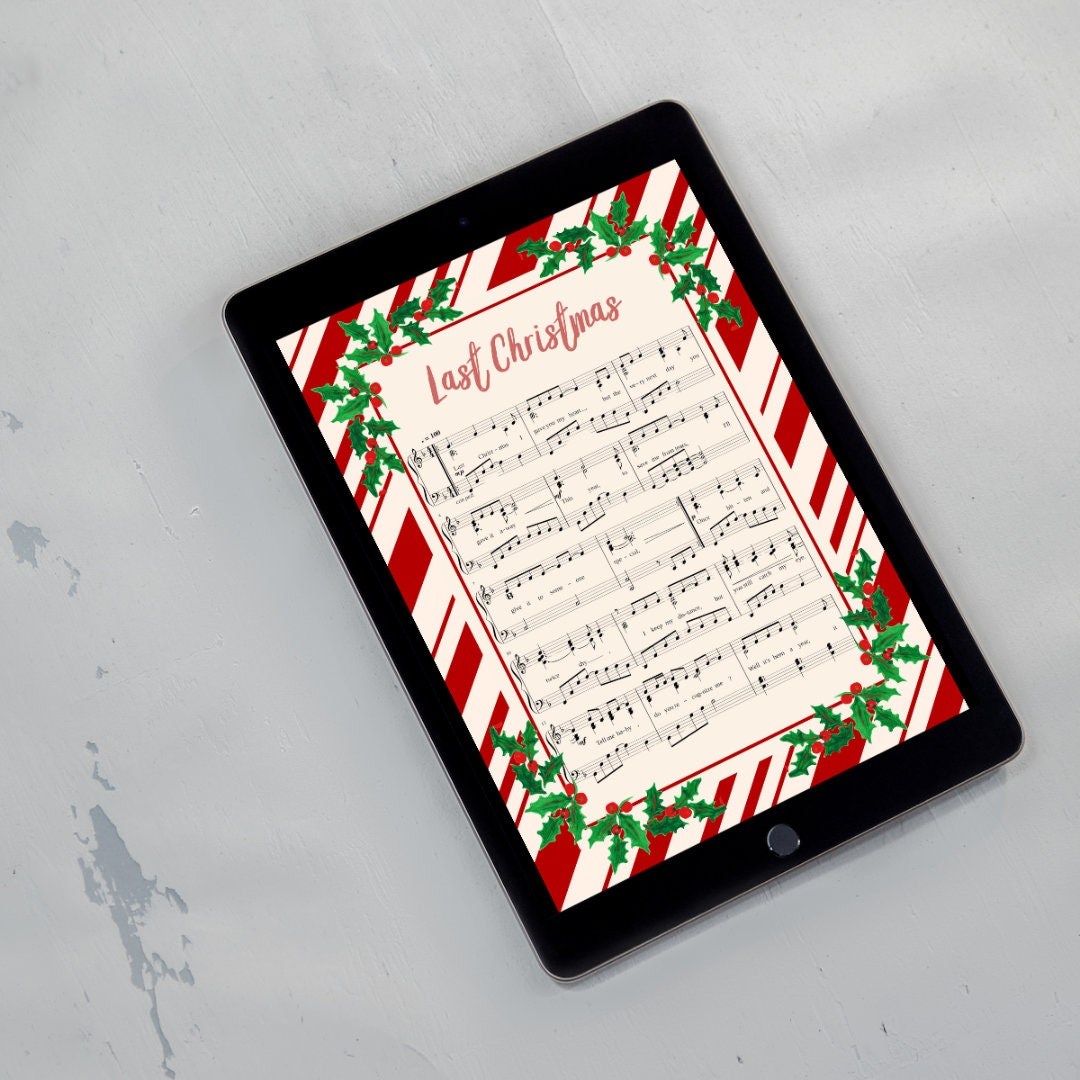 Last Christmas
= 100
Last Christ - mas I gave you my heart... but the ve - ry next day you
con ped
gave it a - way This year, to save me from tears, I'll
give it to some - one spe - cial, Once bit - ten and
twice shy I keep my dis - tance, but you still catch my eye.
Tell me ba - by, do you re - cog - nize me ? Well it's been a year, it